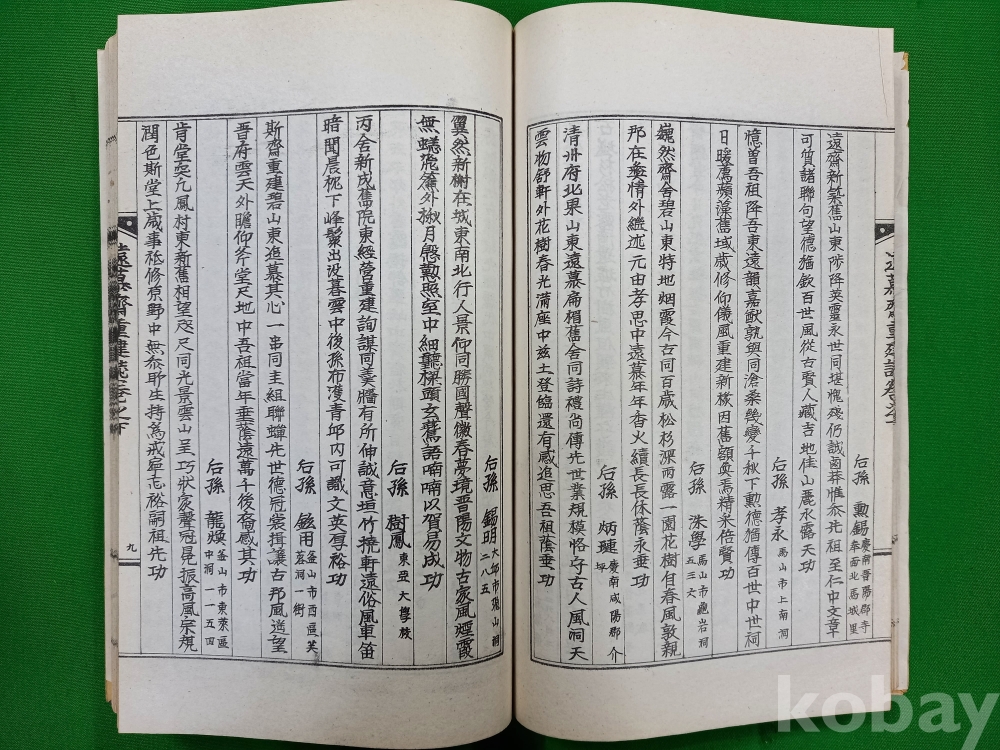 遠慕齋重建誌卷之下
后孫 勳錫 慶南晋陽郡寺奉面北馬城里
遠齋新築舊山東陟降英靈永世同堪愧殘仍誠鹵莽惟泰先祖至仁中文章
可質諸聯句望德猶欽百世風從古賢人藏吉地佳山麗水露天功
后孫 孝永 馬山市上南洞
憶曾吾祖降吾東遠韻嘉猷孰與同滄桑幾變千秋下勳德猶傳百世中世祠
日暖薦蘋藻舊域歲修仰儀風重建新樑因舊額奐焉精采倍賢功
后孫 洙學 馬山市龜岩洞五三六
巍然齋舍碧山東特地烟霞今古同百歲松杉深雨露一園花樹自春風敦親
那在奐情外繼述元由孝思中遠慕年年香火續長長休蔭永垂功
后孫 炳璉 慶南咸陽郡介坪
清州府北果山東遠慕扁楣舊舍同詩禮尚傳先世業規模恪守古人風洞天
雲物舒軒外花樹春光滿座中玆土登臨還有感追思吾祖蔭垂功
后孫 錫明 大邱市 山洞二八五
翼然新榭在城東南北行人景仰同勝國聲徽春夢境晋陽文物古家風煙霞
無蟻虎簾外 月慇勳照至中細聽樑頭玄鶯語喃喃以賀易成功
后孫 樹鳳 東亞大學校
丙舍新成舊院東經營重建詢謀同羹牆有所伸誠意垣竹 軒遠俗風車笛
暗聞晨枕下峰鬟出沒暮雲中後孫布濩青邱內可識文英有裕功
后孫 鎡用 釜山市西區芙蓉洞一街
斯齋重建碧山東追慕其心一串同圭組聯蟬先世德冠裳揖讓古邦風遙望
晋府雲天外瞻仰斧堂尺地中吾祖當年垂蔭遠萬千後裔感其功
后孫 龍煥 釜山市東萊區中洞一一五四
肯堂突兀風村東新舊相望咫尺同光景雲山呈巧狀家聲冠冕振高風宗規
潤色斯堂上歲事祗修原野中無忝聊生持為戒寧忘裕嗣祖先功
遠慕齋重建誌卷之下
九
kobay